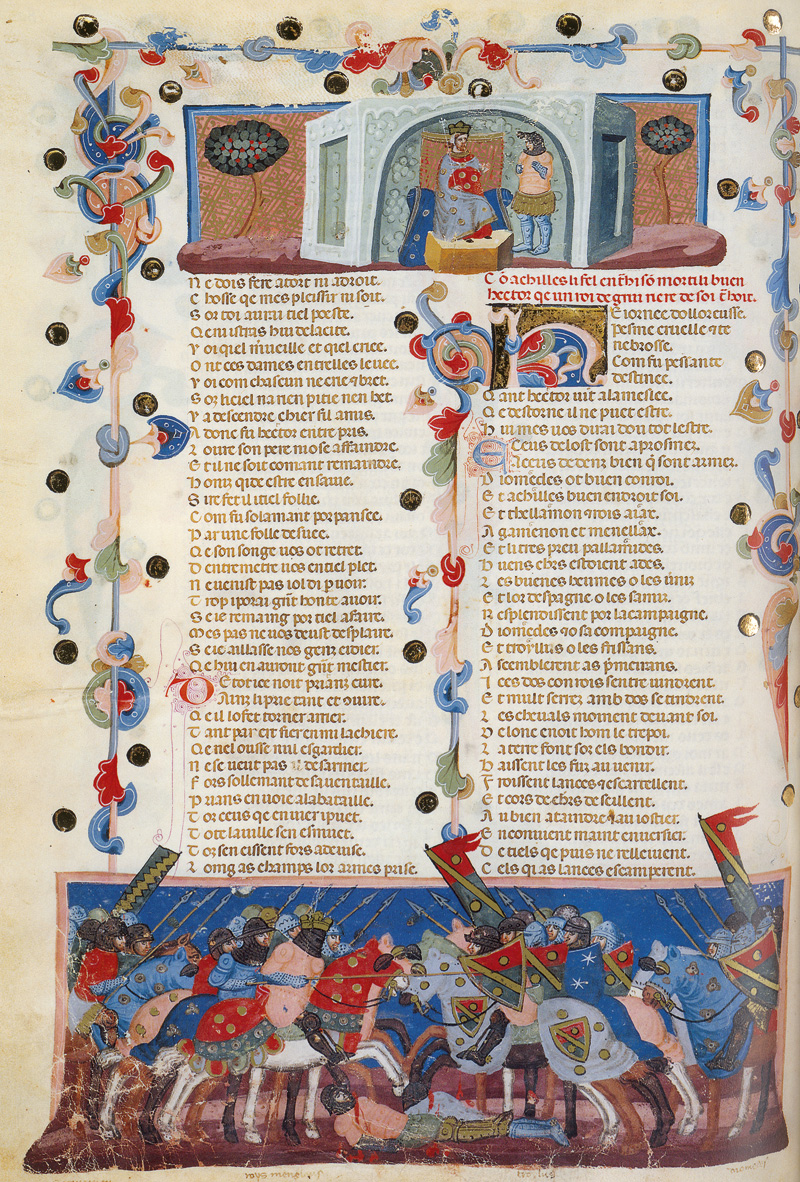 N e dois fere atort ni adroit.
C hosse qe mes pleissir ni soit.
S or toi aurai tiel poeste.
Q e nistras hui de la cite.
V oi quel mueille et quel criee.
O nt ces dames entrelles levee.
V oi com chascun ne crie et bret.
S or hiciel na nen pitie nen het.
V a descendre chier fil amis.
A donc fu hector entre pris.
L oure son pere mose affaindre.
E t il ne soit comant remaindre.
H oniz qide estre en sa vie.
S ire fet il itiel follie.
C om fu solamant por pansee.
P ar une folle desvee.
Q e son songe vos ot retret.
D entremetre vos en tiel plet.
N e venist pas ioi di p voir.
T rop i porai gnt honte avoir.
S e ie remaing por tiel afaire.
M es pas ne vos deust desplaire.
S e ie aillasse nos genz eidier.
Q e hui en auront gnt mestier.
D e tot ice noit prianz cure.
Ainz li prie tant et iure.
Q e il lo fet torner arier.
T ant par ert fier en mi la chiere.
Q e nel ousse nul esgardier.
N e se veut pas desarmer.
F ors sollemant de sa ventaille.
P rians en voie a la bataille.
T or ceus qe en vier ipuet.
T ote la ville sen esmuet.
T or sen eissent fors adeiuse.
L oing as champs lor armes prise.
Cō achilles li fel en thi sō mortili buen
hector qe un roi de gnu niere de soi thoit.
E iornee dolloreusse.
Pesme cruelle et te
nebrosse.
Com fu pessante
destinee.
Q ant hector vit a la meslee.
Q e destorne il ne puet estre.
H ui mes vos dirai dou tot lestre.
C eus de lost sont aprosmez.
A ceus dedenz bien q̄ sont armez.
D iomedes ot buen conroi.
E t achilles buen endroit soi.
E t thellamon et rois aiax.
A gamenon et menellax.
E t li tres preu pallamides.
B uens ebrs estoient ades.
L es buenes heumes o les
E t lor despagne o les samiz.
R esplendissent por la campaigne.
D iomedes et sa compaigne.
E t troyllus o les frissans.
A scemblerent as pmerans.
I ces dos conrois sentre vindrent.
E t mult serrez amb dos se tindrent.
L es chevals moinent devant soi.
D e lone en oit hom le trepoi.
L a terre font sor els bondir.
B aissent les fuz au venir.
F roissent lances et escartellent.
E t cors de ebrs de sellent.
A u bien atandre et au iostier.
E n convient maint enversier.
D e tiels qe puis ne rellevent.
C els qi as lances escamperent.
roys meno